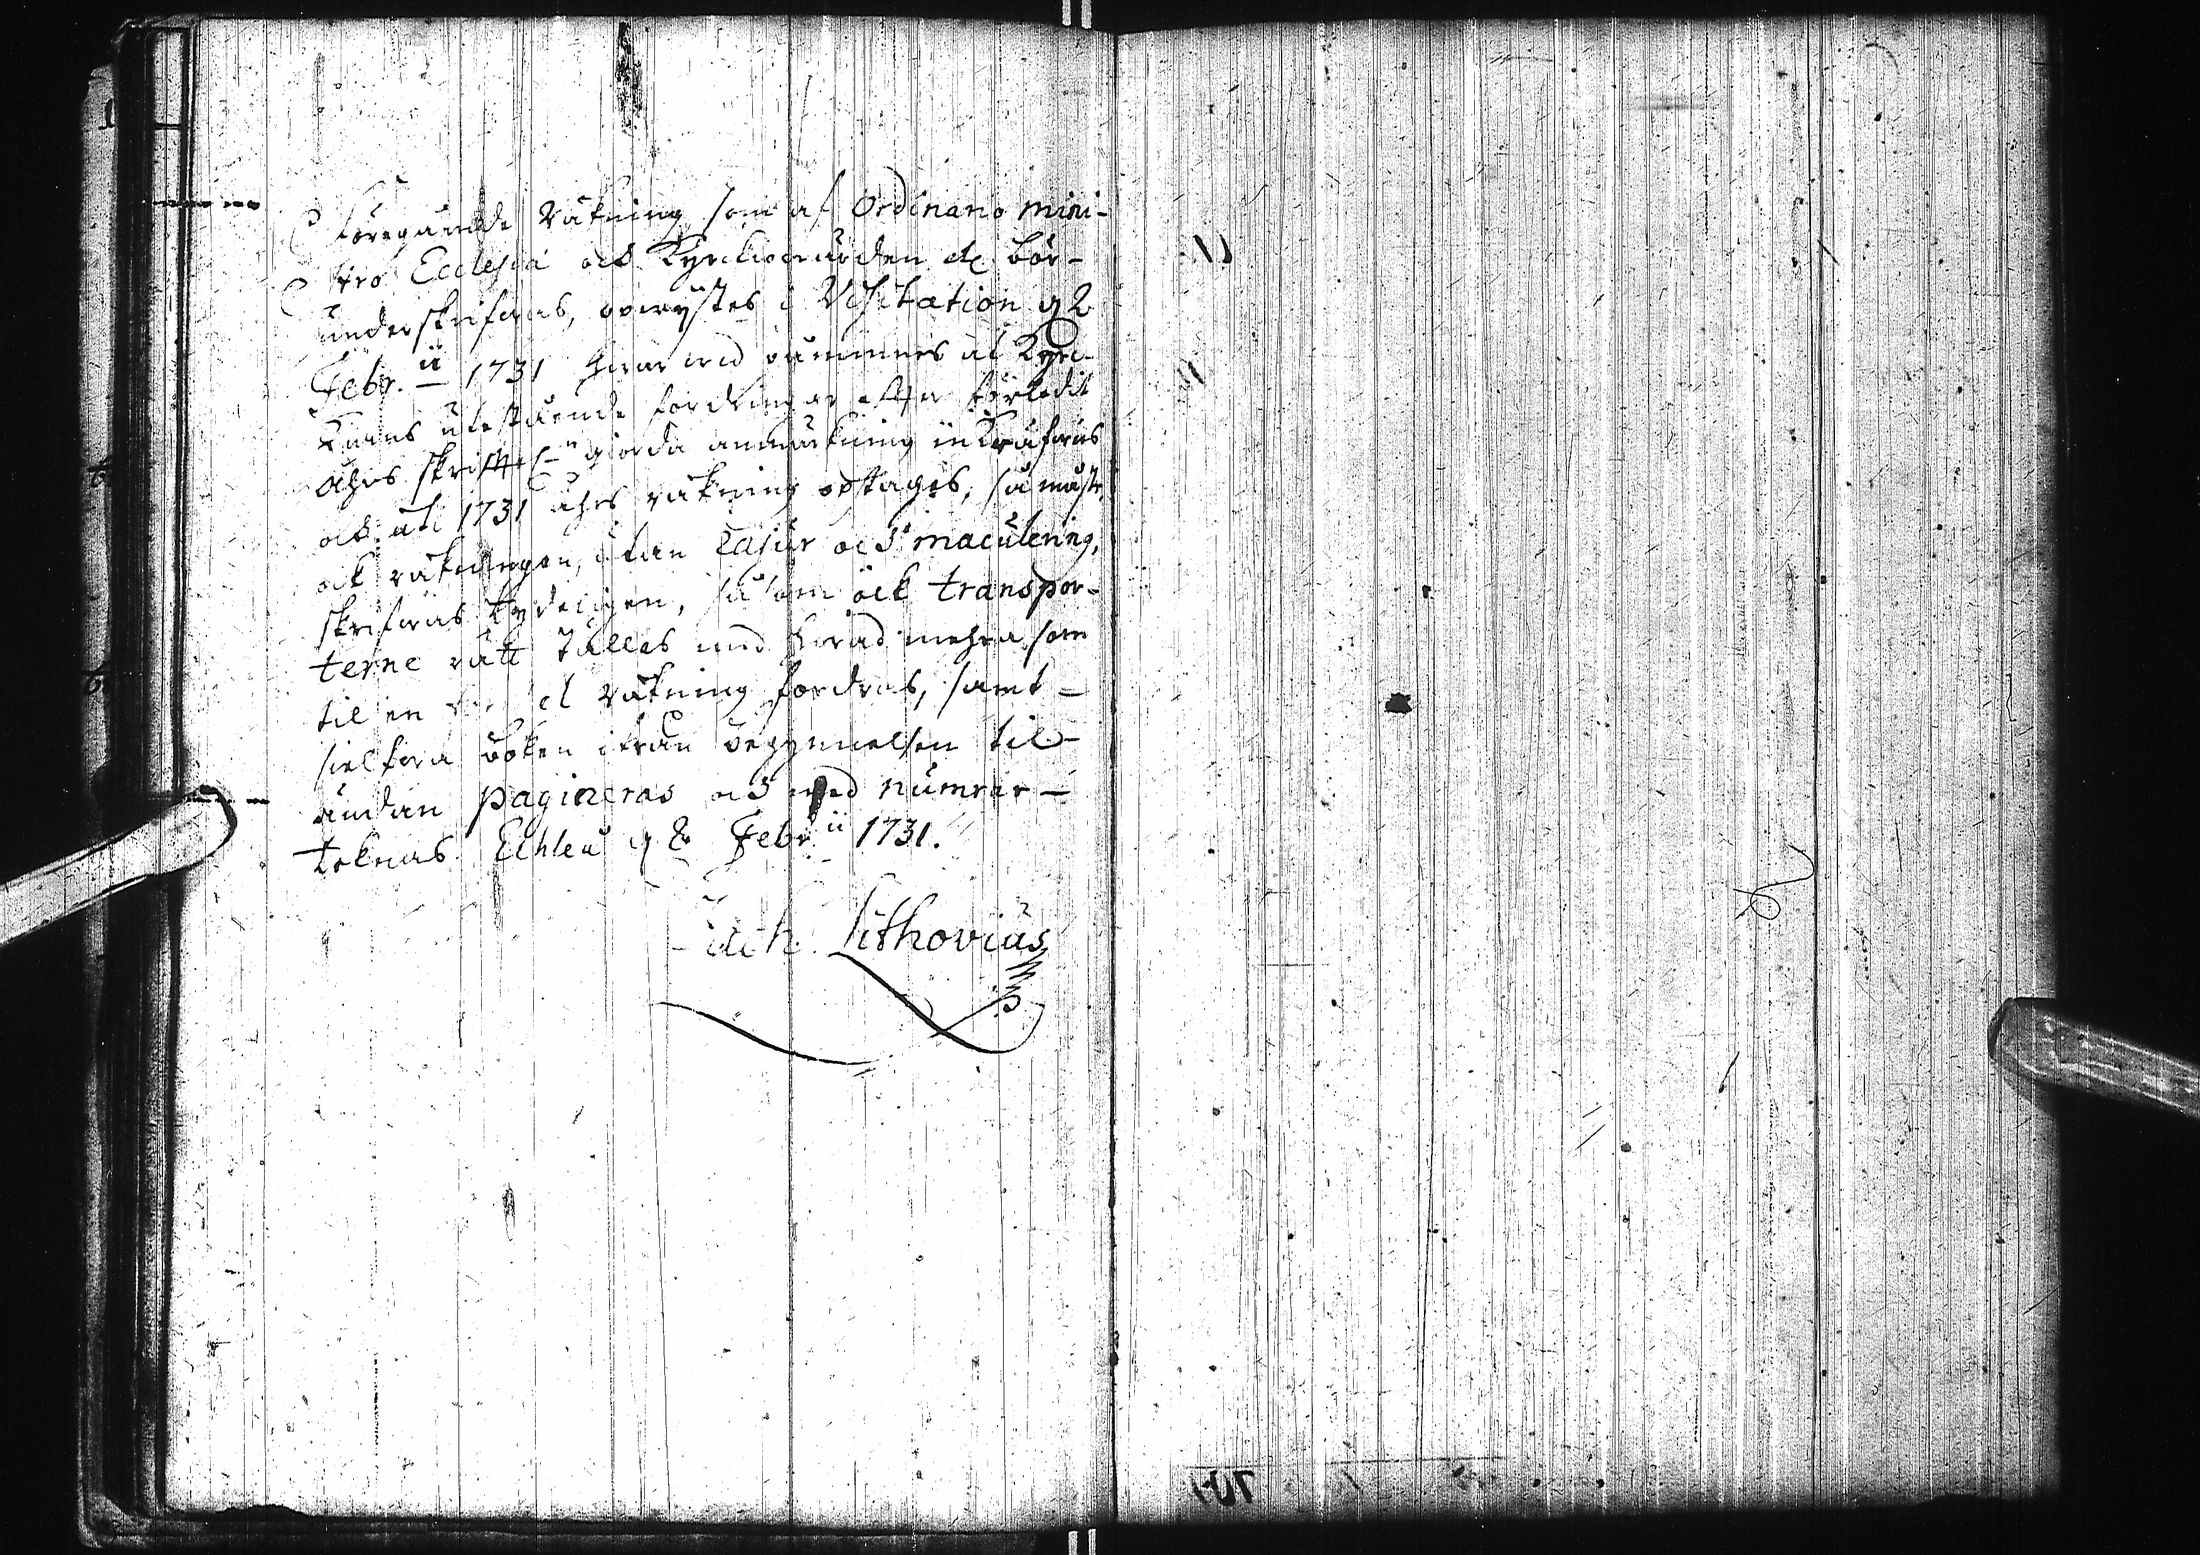 Föregående Räkning som af Ordinario mini-
stro Ecclesiæ och Kyrkiowärden etc bör
underskrifwas, opwistes i Visitation d 2
Febr. ii 1731 hwar wid påminnes at Kyrc-
kians utestående fordringar effter förledit
åhrs skriffteln giorda anmärkning inkräfwas
och uti 1731 åhrs räkning optages, så måste
ock räkningen, utan Rasur och maculering,
skrifwas tydeligen, så som ock transpor-
terne rätt ställes med hwad mehra som
til en räkning fordras, samt
sielfwa boken ifrån begynnelsen til
ändan pagineras och med numrar
teknas Echleu d 2 Febr ii 1731.
Zach. Lithovius